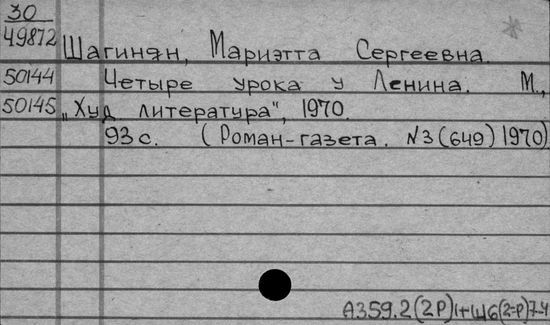 30
49872 Шагинян, Мариэтта Сергеевна.
50144 Четыре урока у Ленина. М.,
50145 "Худ литература", 1970.
93 с. (Роман-газета. N3 (649) 1970)
А359.2(2Р)1+Ш6(2=Р)7-4